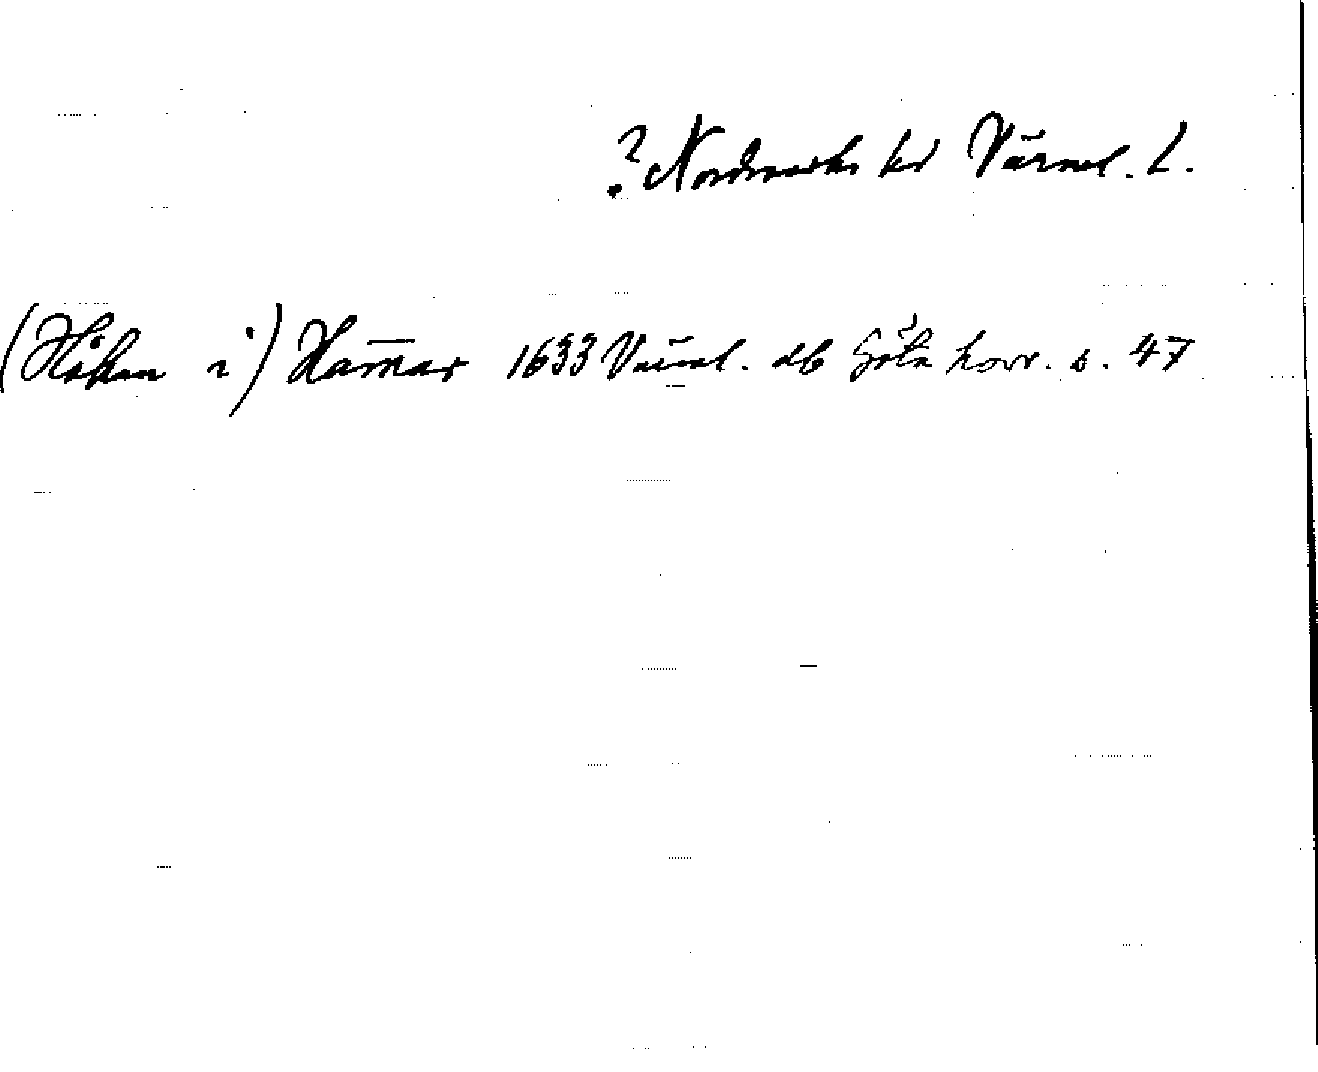 ? Nordmarks hd Värml. L.
(Håkan i) Ham̅ar 1633 Värml. db Göta hovr. s. 47